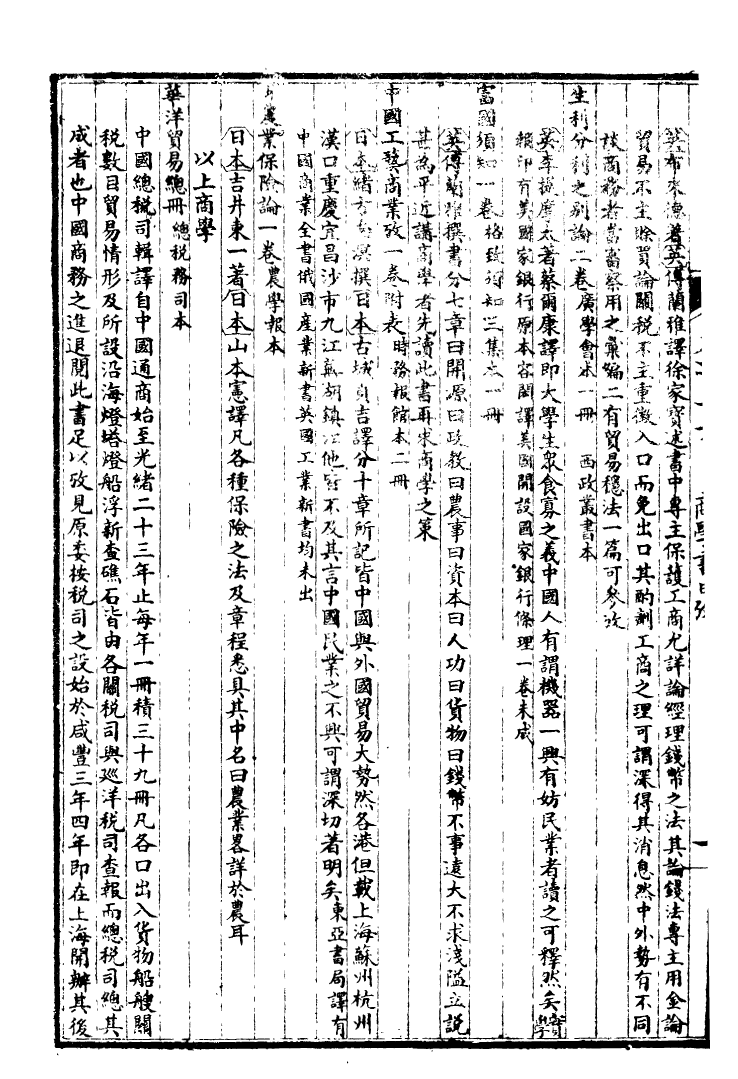 英布來德著英傅蘭雅譯徐家寶述書中專主保護工商尤詳論經理錢幣之法其論錢法專主用金論
貿易不主賒貰論關稅不主重徵入口而免出口其酌劑工商之理可謂深得其消息然中外勢有不同
談商務者當審察用之彙編二有貿易穩法一篇可參攷
生利分利之別論二卷廣學會本一冊　西政叢書本
英李提摩太著蔡爾康譯即大學生衆食寡之義中國人有謂機器一興有妨民業者讀之可釋然矣實學
報印有美國家銀行原本容閎譯美國開設國家銀行條理一卷未成
富國須知一卷格致須知三集之一冊
英傅蘭雅撰書分七章曰開源曰政教曰農事曰資本曰人功曰貨物曰錢幣不事遠大不求淺隘立說
甚為平近講商學者先讀此書再求商學之策
中國工藝商業攷一卷附表時務報館本二冊
日本緒方南溟撰日本古城貞吉譯分十章所記皆中國與外國貿易大勢然各港但載上海蘇州杭州
漢口重慶宜昌沙市九江蕪湖鎮江他皆不及其言中國民業之不興可謂深切著明矣東亞書局譯有
中國商業全書俄國產業新書英國工業新書均未出
農業保險論一卷農學報本
日本吉井東一著日本山本憲譯凡各種保險之法及章程悉具其中名曰農業畧詳於農耳
以上商學
華洋貿易總冊總稅務司本
中國總稅司輯譯自中國通商始至光緒二十三年止每年一冊積三十九冊凡各口出入貨物船艘關
稅數目貿易情形及所設沿海燈塔燈船浮新查礁石皆由各關稅司與巡洋稅司查報而總稅司總其
成者也中國商務之進退閱此書足以攷見原委按稅司之設始於咸豐三年四年即在上海開辦其後